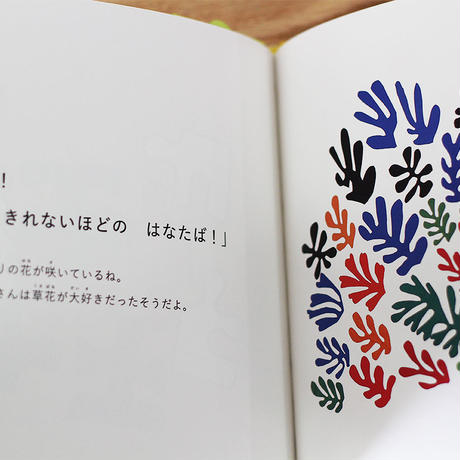 ！
きれないほどの　はなたば！」
りの花が咲いているね。
さんは草花が大好きだったそうだよ。